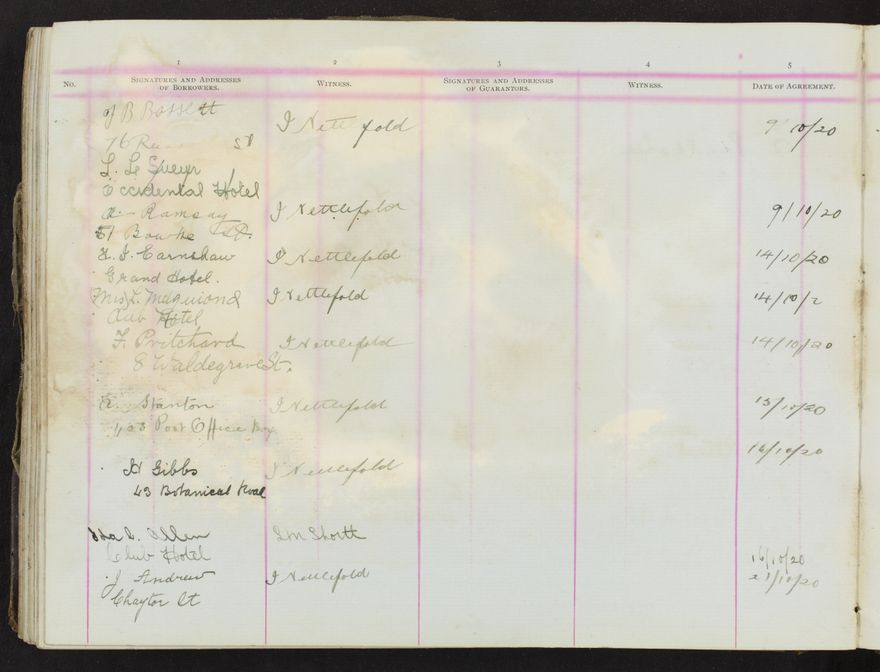 1 2 3 4 5
No. Signatures and Addresses of Borrowers. Witness. Signatures and Addresses of Guarantors. Witness. Date of Agreement.
J B Bassett I Nettlefold 9/10/20
76 St
L. Le
Occidental Hotel
A. Ramsay I Nettlefold 9/10/20
51 Bourke St.
Earnshaw I Nettlefold 14/10/20
Grand Hotel.
I Nettlefold 14/10/2
Club Hotel
F. Pritchard I Nettlefold 14/10/20
8 Waldegrave St.
Stanton I Nettlefold 15/10/20
403 Post Office
H Gibbs I Nettlefold 16/10/20
43 Botanical Road
Ida D. Allen I M Shortt
Club Hotel 16/10/20
J Andrew I Nettlefold 21/10/20
Chaytor St